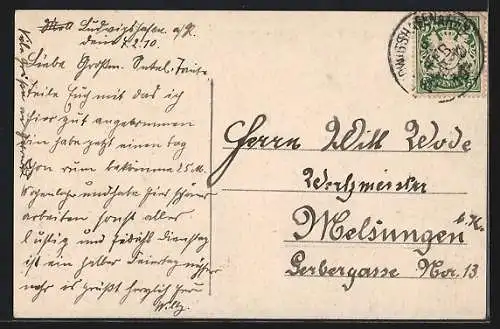 Ludwigshafen a/R.
den 7.2.10.
Liebe Großm. Onkel, Tante
Teile Euch mit das ich
hier gut angekommen
bin habe jetzt einen tag
schon rum bekomme 25 M.
Wochenlohn und habe hier schöner
arbeiten sonst alles
lustig und fidähl Dienstag
ist ein halber Feiertag
mehr es grüßt herzlich Euer
Willy
Herrn Will Wode
Werkmeister
Melsungen
b. K.
Gerbergasse Nor. 13.